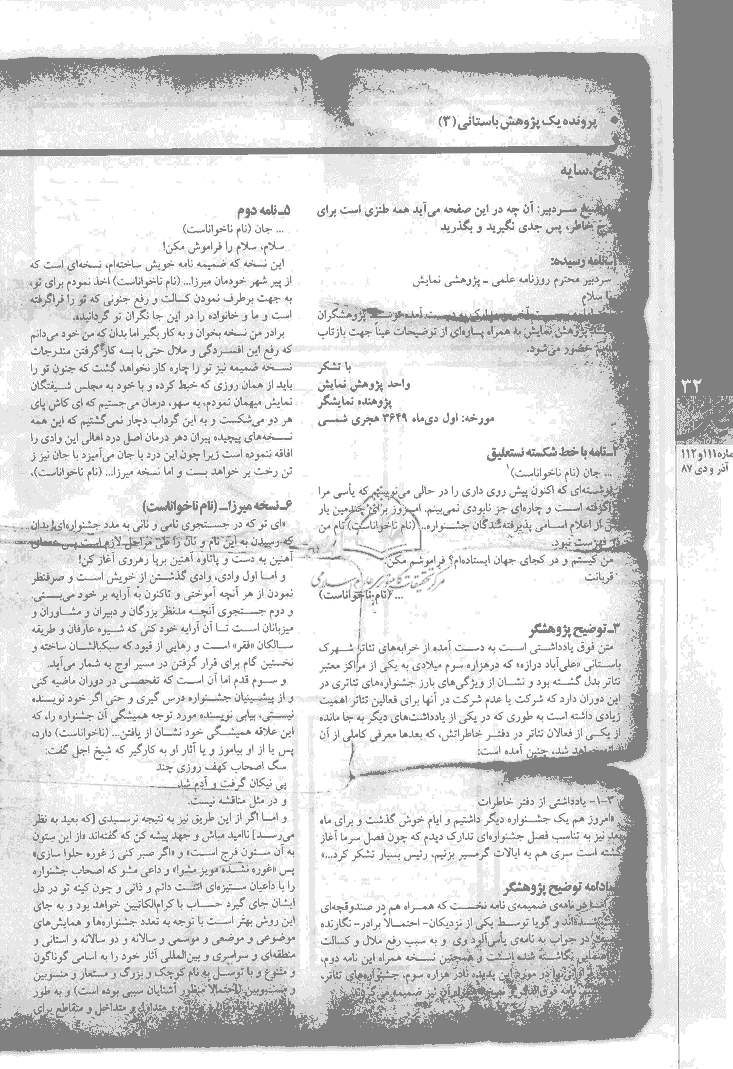 پرونده یک پژوهش باستانی (۳)
سایه
سردبیر: آن چه در این صفحه می‌آید همه طنزی است برای
خاطر، پس جدی نگیرید و بگذرید
نامه رسیده:
سردبیر محترم روزنامه علمی ـ پژوهشی نمایش
سلام
پژوهشگران
پژوهش نمایش به همراه پاره‌ای از توضیحات عیناً جهت بازتاب
حضور می‌شود.
با تشکر
واحد پژوهش نمایش
پژوهنده نمایشگر
مورخه: اول دی‌ماه ۳۶۴۹ هجری شمسی
نامه با خط شکسته نستعلیق
... جان (نام ناخواناست)۱
نوشته‌ای که اکنون پیش روی داری را در حالی می‌نویسم که یأسی مرا
فراگرفته است و چاره‌ای جز نابودی نمی‌بینم. امروز برای چندمین بار
پس از اعلام اسامی پذیرفته‌شدگان جشنواره... (نام ناخواناست) نام من
در فهرست نبود.
من کیستم و در کجای جهان ایستاده‌ام؟ فراموشم مکن
قربانت
... (نام ناخواناست)
۳ـ توضیح پژوهشگر
متن فوق یادداشتی است به دست آمده از خرابه‌های تئاتر شهرک
باستانی «علی‌آباد درازه» که درهزاره سوم میلادی به یکی از مراکز معتبر
تئاتر بدل گشته بود و نشان از ویژگی‌های بارز جشنواره‌های تئاتری در
این دوران دارد که شرکت یا عدم شرکت در آنها برای فعالین تئاتر اهمیت
زیادی داشته است به طوری که در یکی از یادداشت‌های دیگر به جا مانده
از یکی از فعالان تئاتر در دفتر خاطراتش، که بعدها معرفی کاملی از آن
خواهد شد، چنین آمده است:
۳-۱- یادداشتی از دفتر خاطرات
«امروز هم یک جشنواره دیگر داشتیم و ایام خوش گذشت و برای ماه
بعد نیز به تناسب فصل جشنواره‌ای تدارک دیدم که چون فصل سرما آغاز
گشته است سری هم به ایالات گرمسیر بزنیم، رئیس بسیار تشکر کرد...»
ادامه توضیح پژوهشگر
نامه‌ی ضمیمه‌ی نامه نخست که همراه هم در صندوقچه‌ای
و گویا توسط یکی از نزدیکان- احتمالاً برادر- نگارنده
در جواب به نامه‌ی یأس‌آلود وی و به سبب رفع ملال و کسالت
نگاشته شده است و همچنین نسخه همراه این نامه دوم،
در مورد این پدیده نادر هزاره سوم، جشنواره‌های تئاتر،
نامه فوق‌الذکر و ضمیمه آن نیز ضمیمه می‌گردد.
۵ـ نامه دوم
... جان (نام ناخواناست)
سلام، سلام را فراموش مکن!
این نسخه که ضمیمه نامه خویش ساخته‌ام، نسخه‌ای است که
از پیر شهر خودمان میرزا... (نام ناخواناست) اخذ نمودم برای تو،
به جهت برطرف نمودن کسالت و رفع جنونی که تو را فراگرفته
است و ما و خانواده را در این جا نگران تو گردانیده.
برادر من نسخه بخوان و به کار بگیر اما بدان که من خود می‌دانم
که رفع این افسردگی و ملال حتی با به کار گرفتن مندرجات
نسخه ضمیمه نیز تو را چاره کار نخواهد گشت که جنون تو را
باید از همان روزی که خبط کرده و با خود به مجلس شیفتگان
نمایش میهمان نمودم، به سهو، درمان می‌جستیم که ای کاش پای
هر دو می‌شکست و به این گرداب دچار نمی‌گشتیم که این همه
نسخه‌های پیچیده پیران دهر درمان اصل درد اهالی این وادی را
افاقه ننموده است زیرا چون این درد با جان می‌آمیزد با جان نیز ز
تن رخت بر خواهد بست و اما نسخه میرزا... (نام ناخواناست)،
۶ـ نسخه میرزا... (نام ناخواناست)
«ای تو که در جستجوی نامی و نانی به مدد جشنواره‌ای! بدان
که رسیدن به این نام و نان را طی مراحل لازم است پس عصای
آهنین به دست و پاتاوه آهنین برپا رهروی آغاز کن!
و اما اول وادی، وادی گذشتن از خویش است و صرفنظر
نمودن از هر آنچه آموختی و تاکنون به آرایه بر خود می‌بستی.
و دوم جستجوی آنچه مدنظر بزرگان و دبیران و مشاوران و
میزبانان است تا آن آرایه خود کنی که شیوه عارفان و طریقه
سالکان «فقر» است و رهایی از قیود که سبکبالشان ساخته و
نخستین گام برای قرار گرفتن در مسیر اوج به شمار می‌آید.
و سوم قدم اما آن است که تفحصی در دوران ماضیه کنی
و از پیشینیان جشنواره درس گیری و حتی اگر خود نویسنده
نیستی، بیابی نویسنده مورد توجه همیشگی آن جشنواره را، که
این علاقه همیشگی خود نشان از یافتن... (نام ناخواناست) دارد،
پس یا از او بیاموز و یا آثار او به کارگیر که شیخ اجل گفت:
سگ اصحاب کهف روزی چند
پی نیکان گرفت و آدم شد
و در مثل مناقشه نیست.
و اما اگر از این طریق نیز به نتیجه نرسیدی [که بعید به نظر
می‌رسد] ناامید مباش و جهد پیشه کن که گفته‌اند «از این ستون
به آن ستون فرج است» و «اگر صبر کنی ز غوره حلوا سازی»
پس «غوره نشده مویز مشو!» و داعی مشو که اصحاب جشنواره
را با داعیان ستیزه‌ای است دائم و ذاتی و چون کینه تو در دل
ایشان جای گیرد حساب با کرام‌الکاتبین خواهد بود و به جای
این روش بهتر است با توجه به تعدد جشنواره‌ها و همایش‌های
موضوعی و موضعی و موسمی و سالانه و دو سالانه و استانی و
منطقه‌ای و سراسری و بین‌المللی آثار خود را به اسامی گوناگون
و متنوع و با توسل به نام کوچک و بزرگ و مستعار و منسوبین
و منسوبین (احتمالاً منظور آشنایان سببی بوده است) و به طور
متداول و متداخل و متقاطع برای
۳۲
۱۱۱و۱۱۲
آذر و دی ۸۷
مرکز تحقیقات کامپیوتری علوم اسلامی